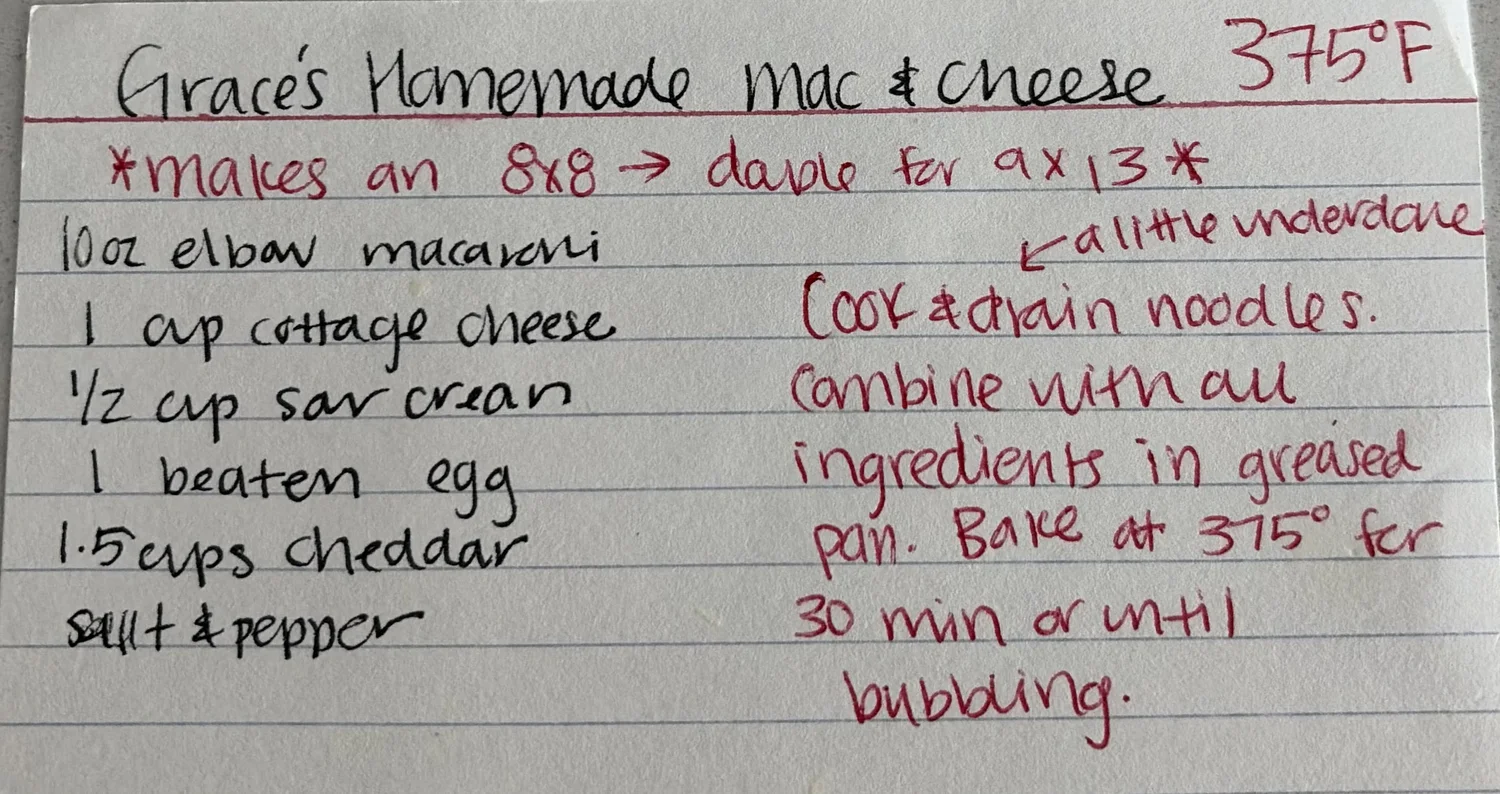 Grace's Homemade mac & cheese 375°F
*makes an 8x8 → double for 9x13*
10oz elbow macaroni
1 cup cottage cheese
1/2 cup sour cream
1 beaten egg
1.5 cups cheddar
salt & pepper
↙ a little underdone
Cook & drain noodles.
Combine with all
ingredients in greased
pan. Bake at 375° for
30 min or until
bubbling.